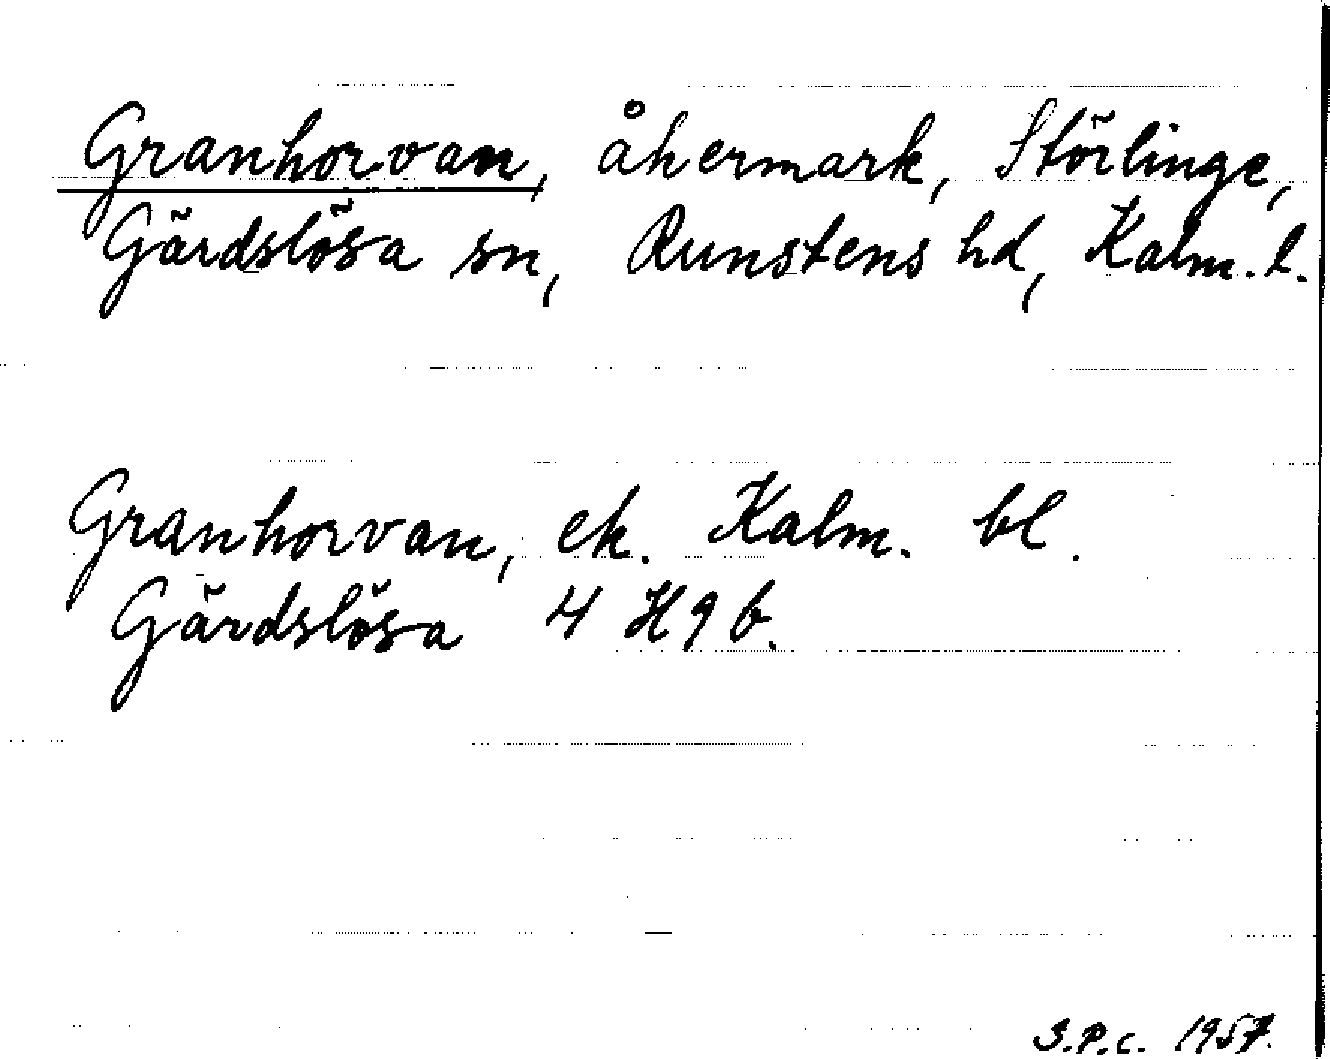 Granhorvan, åkermark, Störlinge,
Gärdslösa sn, Runstens hd, Kalm. l.
Granhorvan, ek. Kalm. bl.
Gärdslösa 4 H 9 b.
S.P.c. 1957.